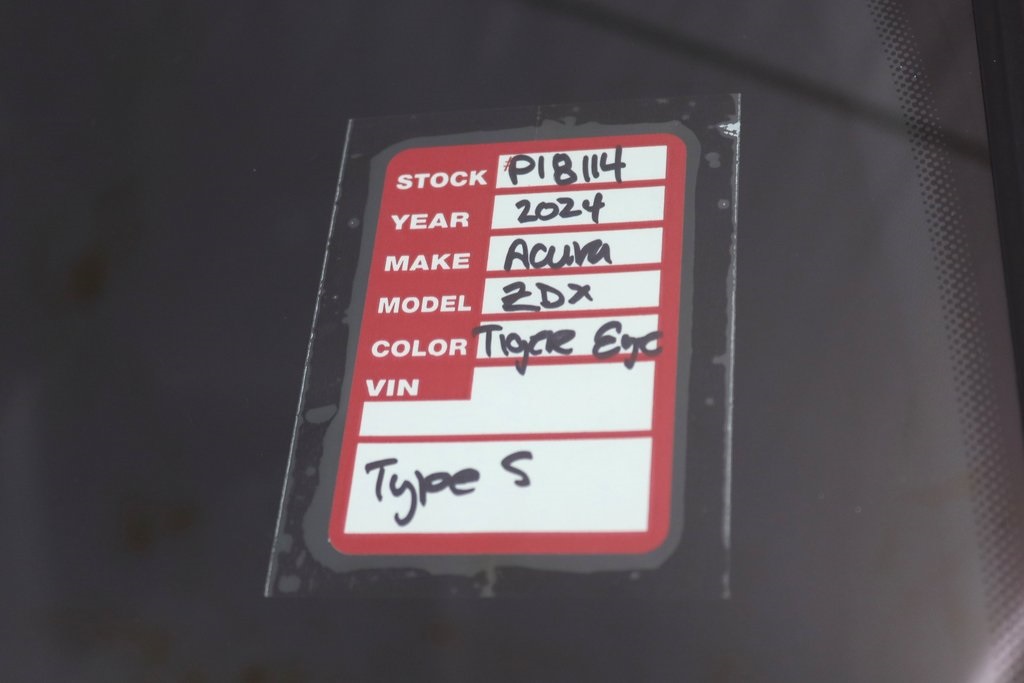 STOCK # P18114
YEAR 2024
MAKE Acura
MODEL ZDX
COLOR Tiger Eye
VIN
Type S